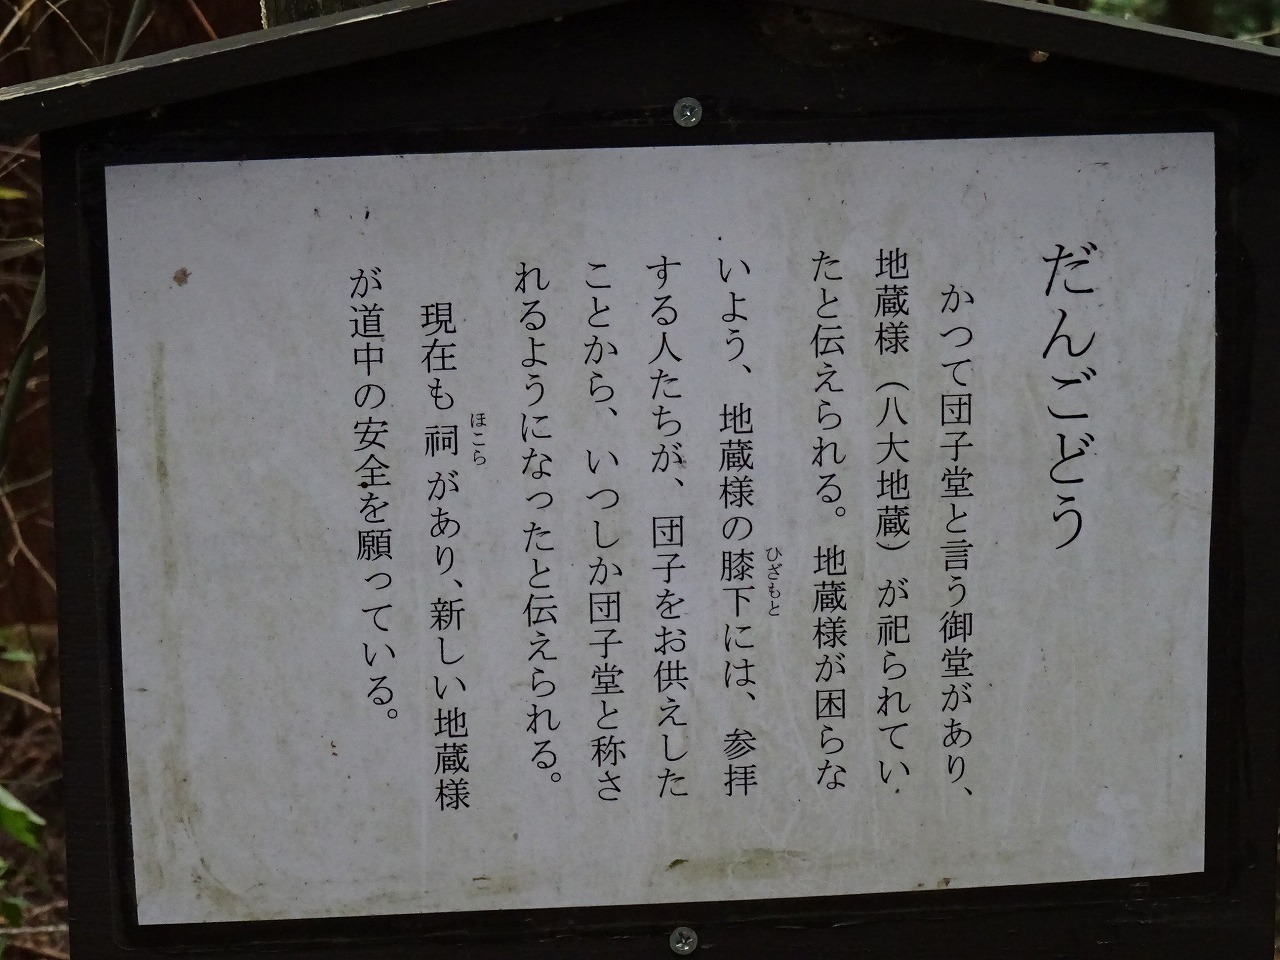 だんごどう
かつて団子堂と言う御堂があり、
地蔵様（八大地蔵）が祀られてい
たと伝えられる。地蔵様が困らな
いよう、地蔵様の膝下には、参拝
ひざもと
する人たちが、団子をお供えした
ことから、いつしか団子堂と称さ
れるようになったと伝えられる。
現在も祠があり、新しい地蔵様
ほこら
が道中の安全を願っている。